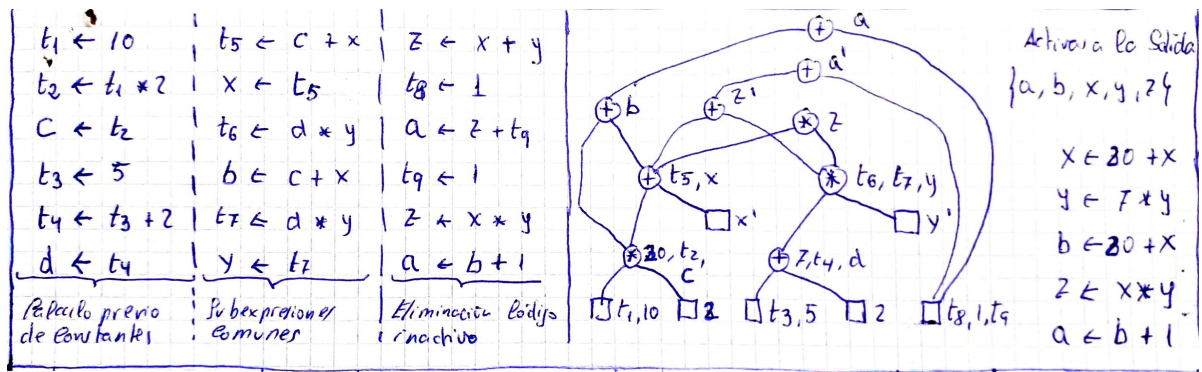 t1 ← 10
t2 ← t1 * 2
C ← t2
t3 ← 5
t4 ← t3 + 2
d ← t4
Cálculo previo
de constantes
t5 ← C + x
x ← t5
t6 ← d * y
b ← c + x
t7 ← d * y
y ← t7
Subexpresiones
comunes
z ← x + y
t8 ← 1
a ← z + t9
t9 ← 1
z ← x * y
a ← b + 1
Eliminación código
inactivo
+ a
+ a'
+ b
+ z'
* z
+ t5, x
* t6, t7, y
x'
y'
* 20, t2,
C
+ 7, t4, d
t1, 10
2
t3, 5
2
t8, 1, t9
Activas a la Salida
{a, b, x, y, z}
x ← 20 + x
y ← 7 * y
b ← 20 + x
z ← x * y
a ← b + 1